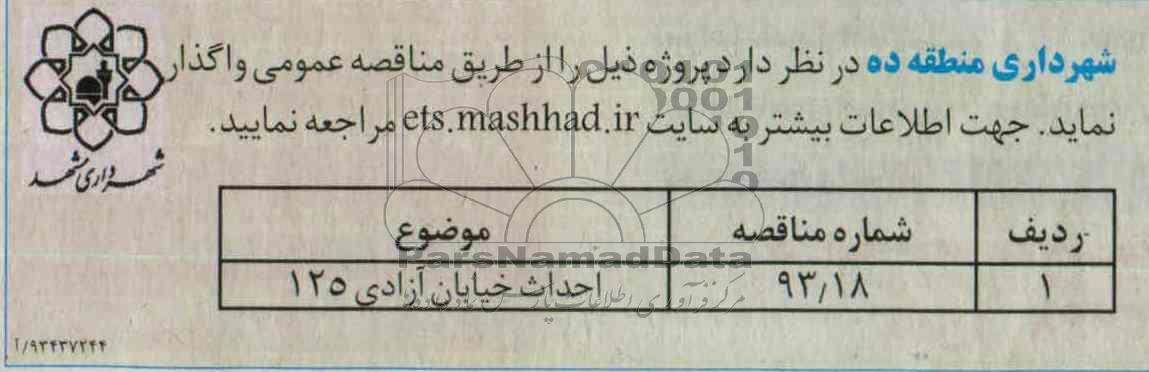 شهرداری منطقه ده در نظر دارد پروژه ذیل را از طریق مناقصه عمومی واگذار
نماید. جهت اطلاعات بیشتر به سایت ets.mashhad.ir مراجعه نمایید.
شهرداری مشهد
ردیف شماره مناقصه موضوع
۱ ۹۳٫۱۸ احداث خیابان آزادی ۱۲۵
ParsNamadData
۹۳۴۳۷۲۴۴/آ